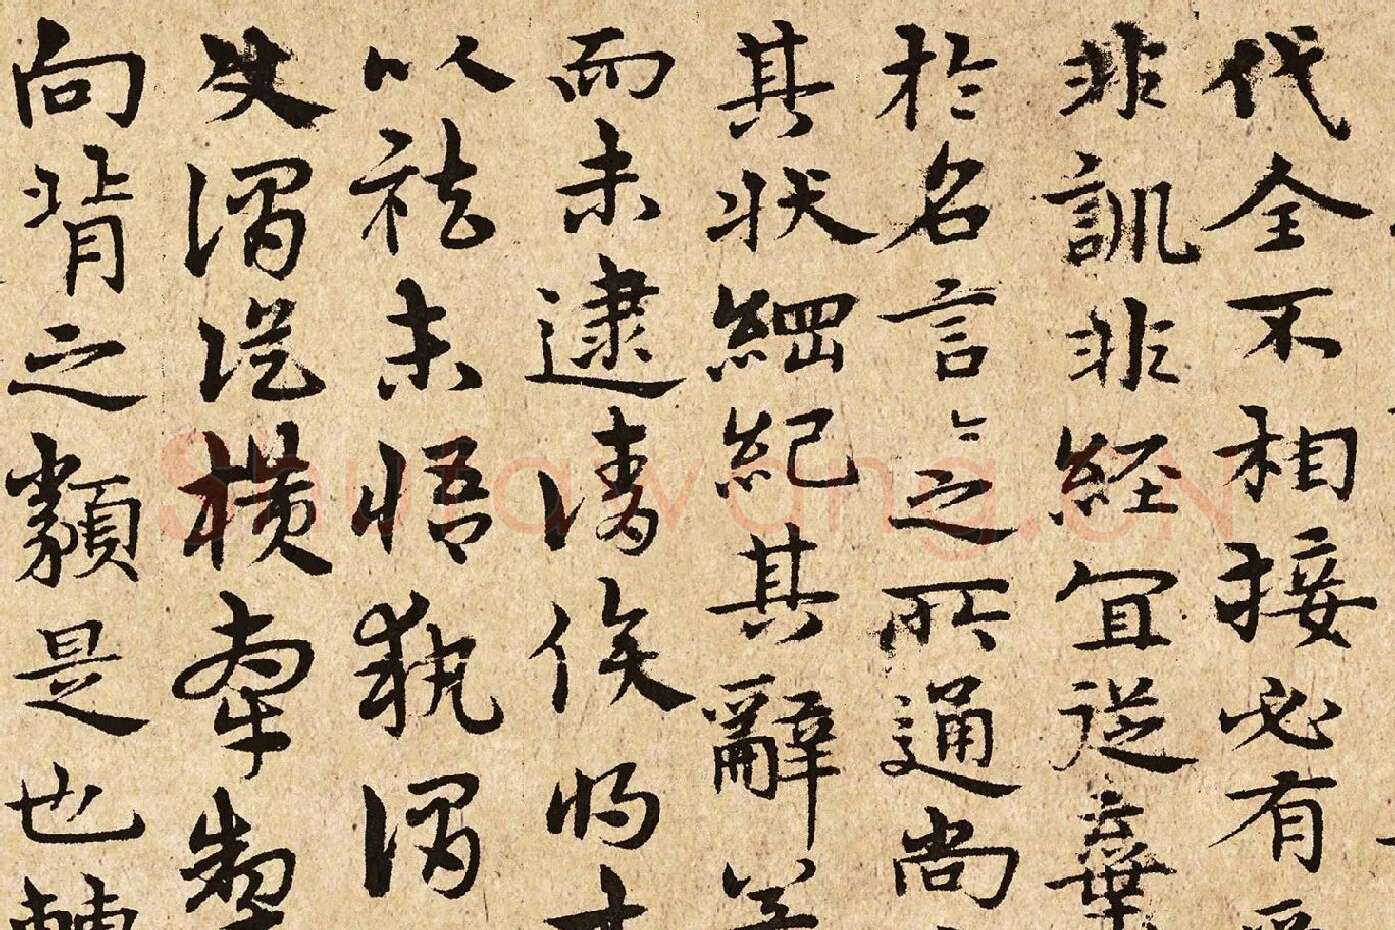 代全不相接必有
非訓非經宜從棄
於名言〻之所通尚
其狀綱紀其辭
而未逮請俟將
以祛未悟執謂
使謂從橫牽掣
向背之類是也轉
Shufawang.CN